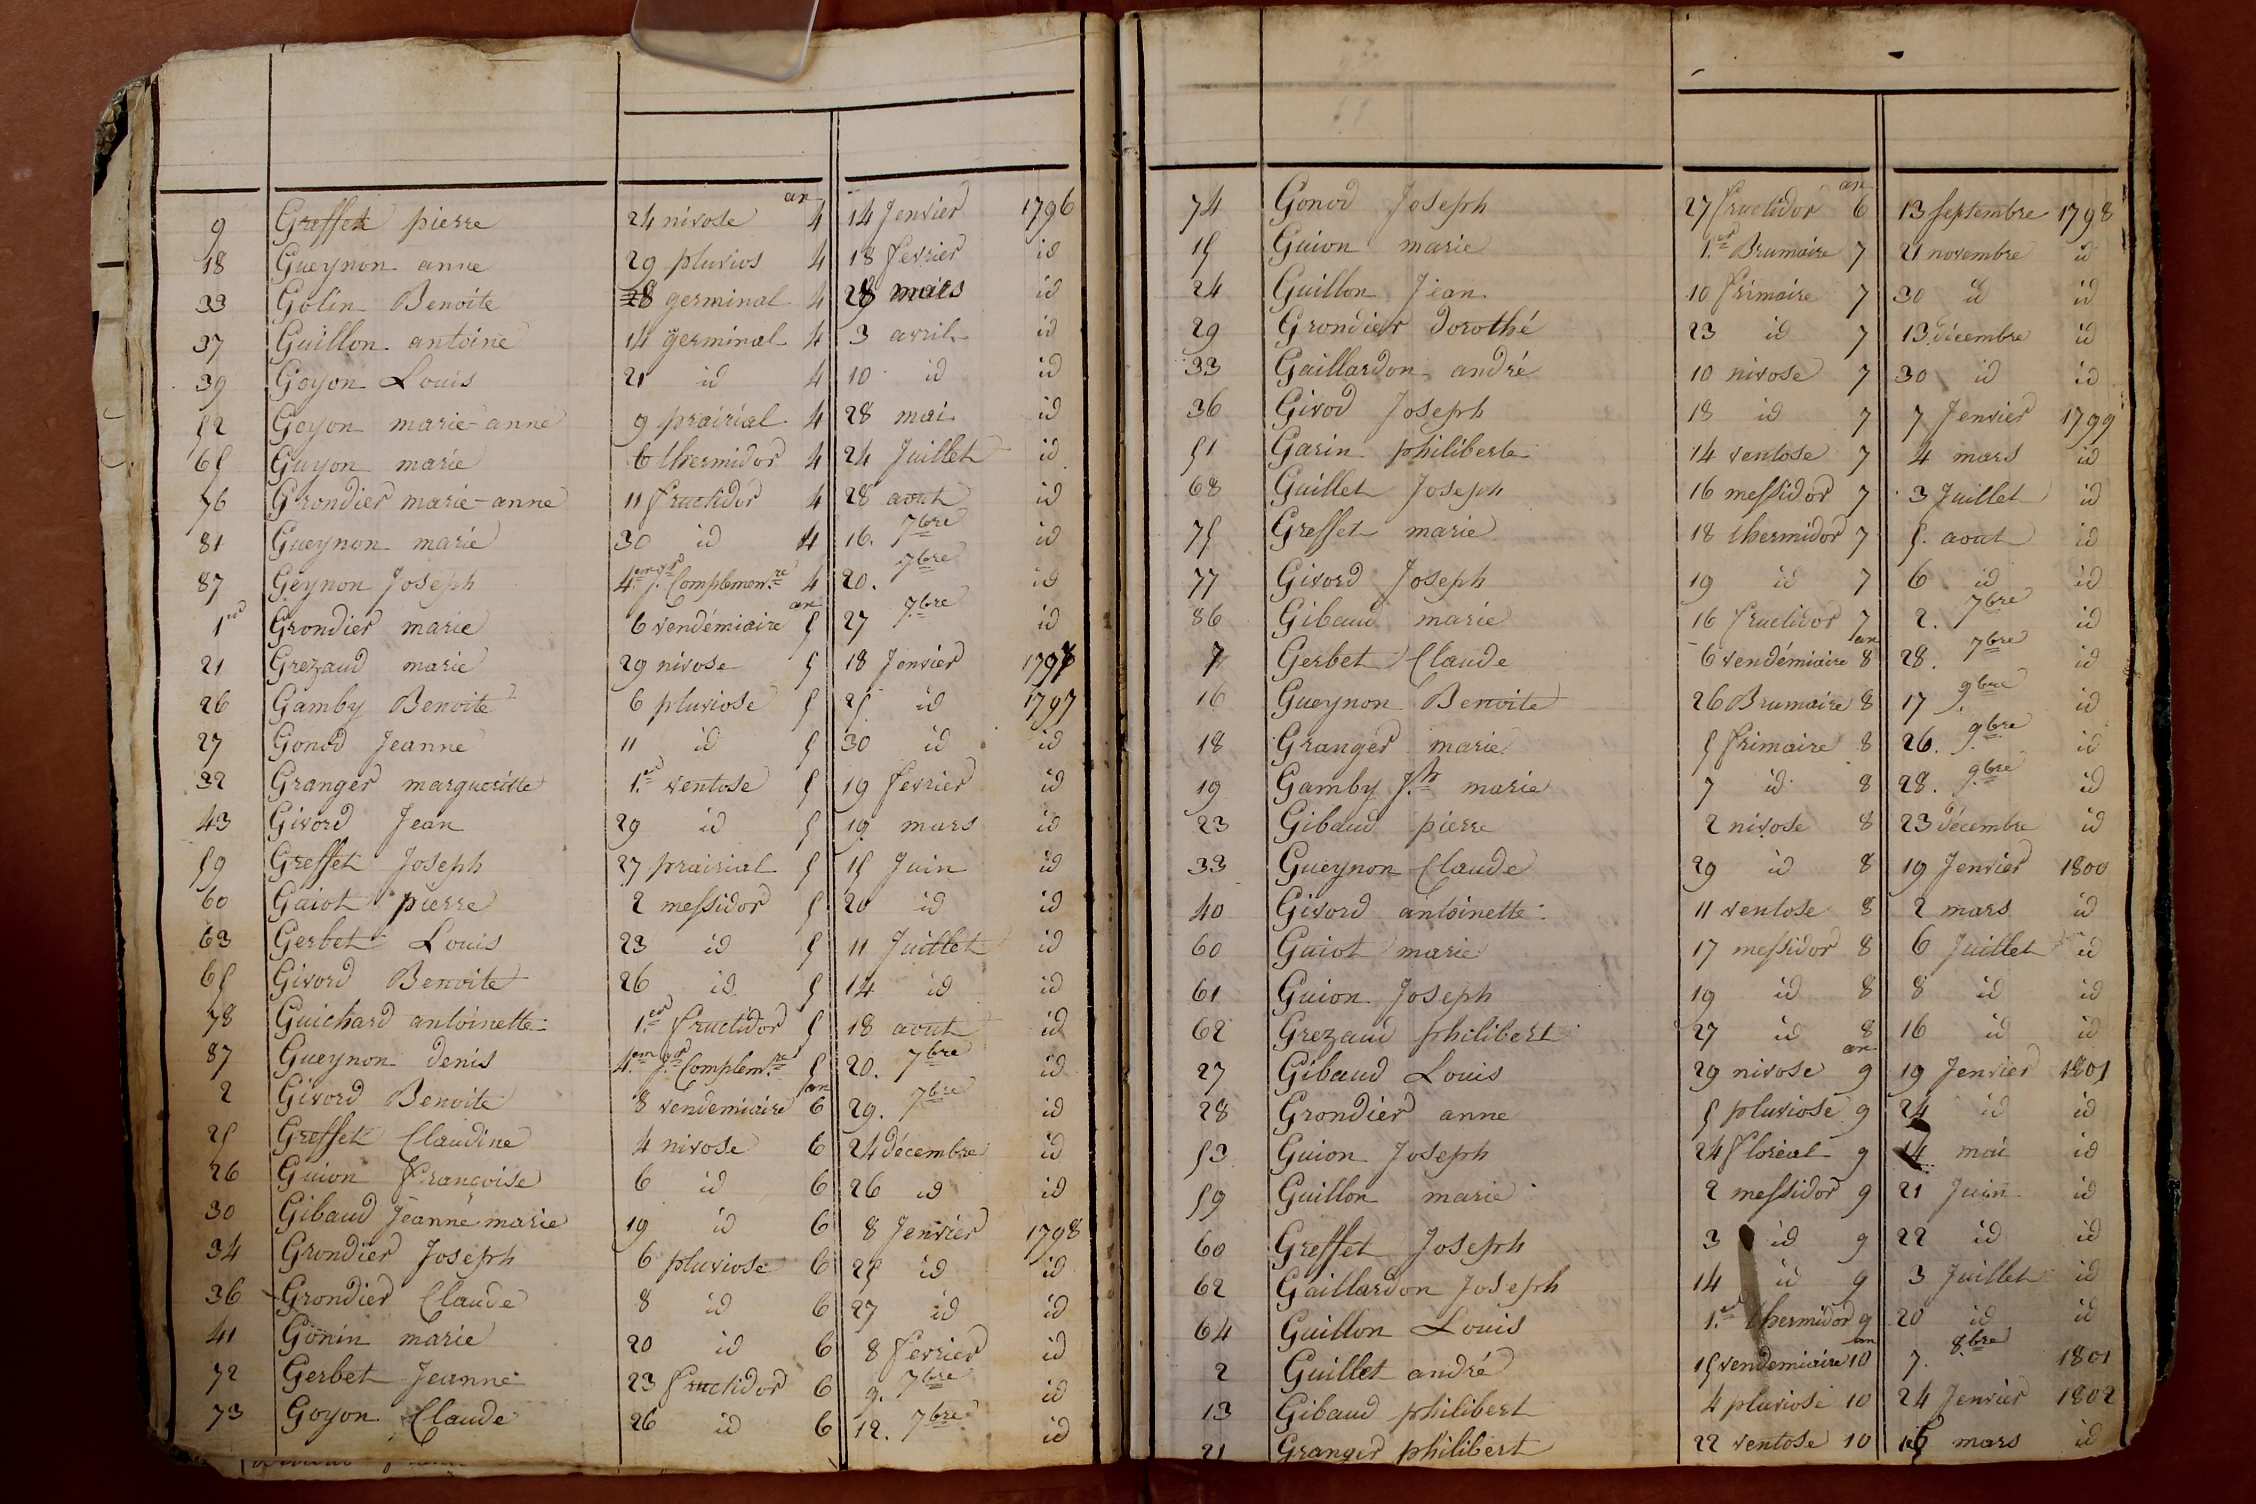 an
9 Greffet pierre 24 nivose 4 14 Jenvier 1796
18 Gueynon anne 29 pluvios 4 18 fevrier id
33 Golin Benoite 28 germinal 4 28 mars id
37 Guillon antoine 14 germinal 4 3 avril id
39 Goyon Louis 21 id 4 10 id id
52 Goyon marie-anne 9 prairial 4 28 mai id
65 Guyon marie 6 thermidor 4 24 Juillet id
76 Grondier marie-anne 11 fructidor 4 28 aout id
81 Gueynon marie 30 id 4 16. 7bre id
87 Geynon Joseph 4em jr Complemenre 4 20. 7bre id
an
1er Grondier marie 6 vendémiaire 5 27 7bre id
21 Grezaud marie 29 nivose 5 18 Jenvier 1797
26 Gamby Benoite 6 pluviose 5 25 id 1797
27 Gonod Jeanne 11 id 5 30 id id
32 Granger margueritte 1er ventose 5 19 fevrier id
43 Givord Jean 29 id 5 19 mars id
59 Greffet Joseph 27 prairial 5 15 Juin id
60 Gaiot pierre 2 messidor 5 20 id id
63 Gerbet Louis 23 id 5 11 Juillet id
65 Givord Benoite 26 id 5 14 id id
78 Guichard antoinette 1er fructidor 5 18 aout id
87 Gueynon denis 4em jr Complemre 5 20. 7bre id
an
2 Givord Benoite 8 vendemiaire 6 29. 7bre id
25 Greffet Claudine 4 nivose 6 24 décembre id
26 Guion françoise 6 id 6 26 id id
30 Gibaud Jeanne marie 19 id 6 8 Jenvier 1798
34 Grondier Joseph 6 pluviose 6 25 id id
36 Grondier Claude 8 id 6 27 id id
41 Gonin marie 20 id 6 8 fevrier id
72 Gerbet Jeanne 23 fructidor 6 9. 7bre id
73 Goyon Claude 26 id 6 12. 7bre id
an
74 Gonod Joseph 27 fructidor 6 13 septembre 1798
15 Guion marie 1er Brumaire 7 21 novembre id
24 Guillon Jean 10 frimaire 7 30 id id
29 Grondier dorothé 23 id 7 13 décembre id
33 Gaillardon andré 10 nivose 7 30 id id
36 Givod Joseph 18 id 7 7 Jenvier 1799
51 Garin philiberte 14 ventose 7 4 mars id
68 Guillet Joseph 16 messidor 7 3 Juillet id
75 Greffet marie 18 thermidor 7 5. aout id
77 Givord Joseph 19 id 7 6 id id
86 Gibaud marie 16 fructidor 7 2. 7bre id
an
7 Gerbet Claude 6 vendémiaire 8 28. 7bre id
16 Gueynon Benoite 26 Brumaire 8 17 9bre id
18 Granger marie 5 frimaire 8 26. 9bre id
19 Gamby Jh marie 7 id 8 28. 9bre id
23 Gibaud pierre 2 nivose 8 23 decembre id
33 Gueynon Claude 29 id 8 19 Jenvier 1800
40 Givord antoinette 11 ventose 8 2 mars id
60 Gaiot marie 17 messidor 8 6 Juillet id
61 Guion Joseph 19 id 8 8 id id
62 Grezaud philibert 27 id 8 16 id id
an
27 Gibaud Louis 29 nivose 9 19 Jenvier 1801
28 Grondier anne 5 pluviose 9 24 id id
53 Guion Joseph 24 floréal 9 14 mai id
59 Guillon marie 2 messidor 9 21 Juin id
60 Greffet Joseph 3 id 9 22 id id
62 Gaillardon Joseph 14 id 9 3 Juillet id
64 Guillon Louis 1er thermidor 9 20 id id
an
2 Guillet andré 15 vendemiaire 10 7. 8bre 1801
13 Gibaud philibert 4 pluviose 10 24 Jenvier 1802
21 Granger philibert 22 ventose 10 mars id